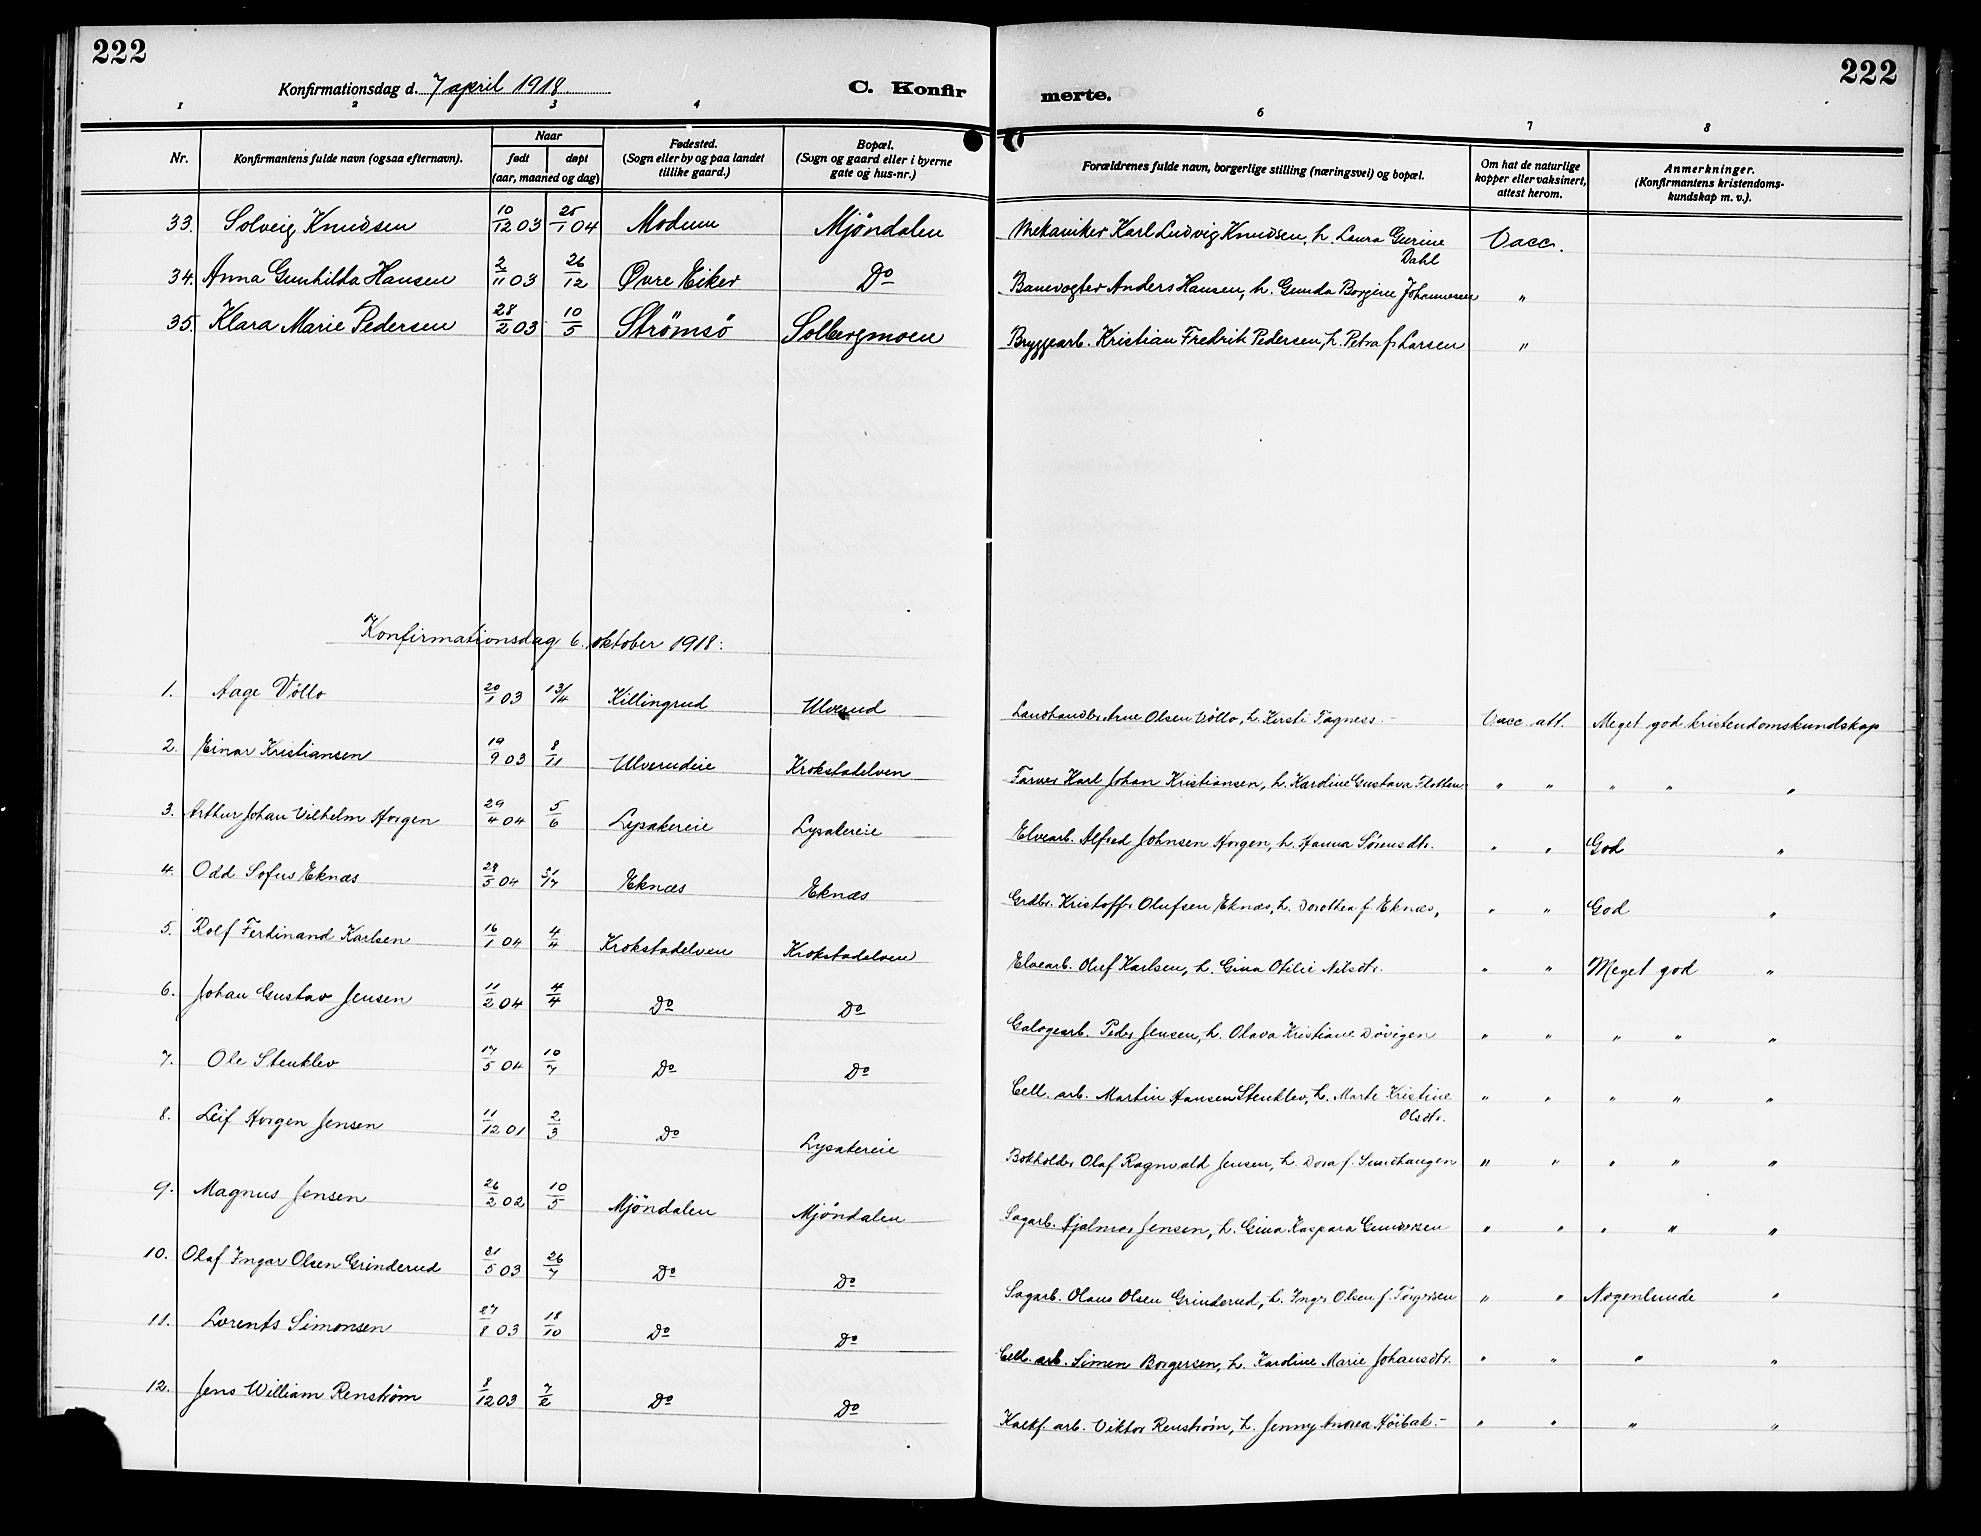 222
222
Konfirmationsdag d. 7 april 1918.
C. Konfir
merte.
1 2 3 4 6 7 8
Nr.
Konfirmantens fulde navn (ogsaa efternavn).
Naar
født
døpt
(aar, maaned og dag)
Fødested.
(Sogn eller by og paa landet
tillike gaard.)
Bopæl.
(Sogn og gaard eller i byerne
gate og hus-nr.)
Forældrenes fulde navn, borgerlige stilling (næringsvei) og bopæl.
Om hat de naturlige
kopper eller vaksinert,
attest herom.
Anmerkninger.
(Konfirmantens kristendoms-
kundskap m. v.).
33. Solveig Knudsen 10/12 03 25/1 04 Modum Mjöndalen Mekaniker Karl Ludvig Knudsen, h. Laura Gurine Vacc.
Dahl
34. Anna Gunhilda Hansen 2/11 03 26/12 Øvre Eiker Do Banevogter Anders Hansen, h. Gunda Borgine Johannesen "
35. Klara Marie Pedersen 28/2 03 10/5 Strömsö Solbergmoen Bryggearb. Kristian Fredrik Pedersen, h. Petra f. Larsen "
Konfirmationsdag 6. oktober 1918:
1. Aage Völlo 20/1 03 13/4 Killingrud Ulverud Landhandler Arne Olsen Völlo, h. Kirsti Tagness - Vacc. att. Meget god kristendomskundskap
2. Einar Kristiansen 19/9 03 8/11 Ulverudeie Krokstadelven Farver Karl Johan Kristiansen, h. Karoline Gustava Flotten " " " " "
3. Arthur Johan Vilhelm Horgen 29/4 04 5/6 Lysakereie Lysakereie Elvearb. Alfred Johnsen Horgen, h. Hanna Sörensdtr. " " God "
4. Odd Sofus Eknæs 28/5 04 Eknæs Eknæs Grdbr. Kristoffer Olufsen Eknæs, h. Dorothea f. Eknæs, " " God "
5. Rolf Ferdinand Karlsen 16/1 04 4/4 Krokstadelven Krokstadelven Elvearb. Oluf Karlsen, h. Gina Otilie Nilsdtr. " " Meget god "
6. Johan Gustav Jensen 11/2 04 4/4 Do Do Galogearb. Peder Jensen, h. Olava Kristiane Dövigen " " " " "
7. Ole Stenklev 17/5 04 10/7 Do Do Cell. arb. Martin Hansen Stenklev, h. Marte Kristine " " " " "
Olsdtr.
8. Leif Horgen Jensen 11/12 01 2/3 Do Lysakereie Bokholder Olaf Ragnvald Jensen, h. Dora f. Sundhaugen " " " " "
9. Magnus Jensen 26/2 02 10/5 Mjöndalen Mjöndalen Sagarb. Hjalmar Jensen, h. Gina Kaspara Gundersen " " " " "
10. Olaf Ingar Olsen Grinderud 21/5 03 26/7 Do Do Sagarb. Olaus Olsen Grinderud, h. Inger Olsen f. Torgersen " " Nogenlunde "
11. Lorents Simonsen 27/8 03 18/10 Do Do Cell. arb. Simen Borgersen, h. Karoline Marie Johansdtr. " " " "
12. Jens William Renström 8/12 03 7/2 Do Do Kalkf. arb. Viktor Renström, h. Jenny Andrea Höibak. - " " " "